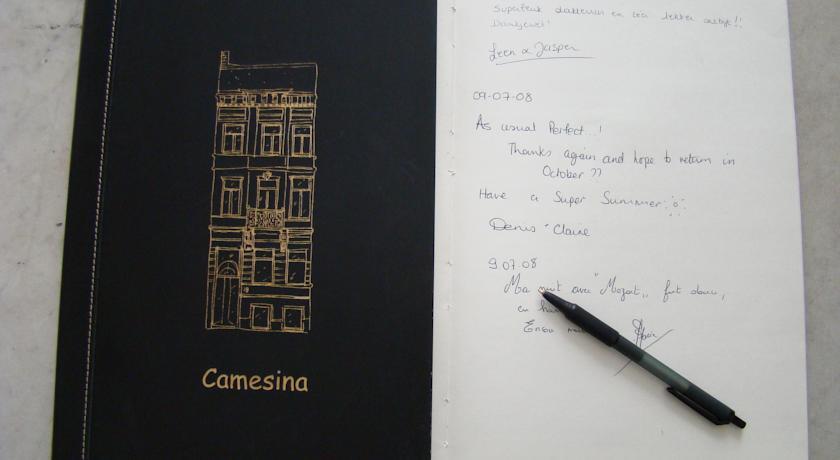 Camesina
Superleuk dakterras en zeer lekker ontbijt!!
Dankjewel!
Leen & Jasper
09-07-08
As usual Perfect...!
Thanks again and hope to return in
October ??
Have a Super Summer
Denis Claire
9.07.08
Ma nuit avec "Mozart" fut douce,
en
Encore